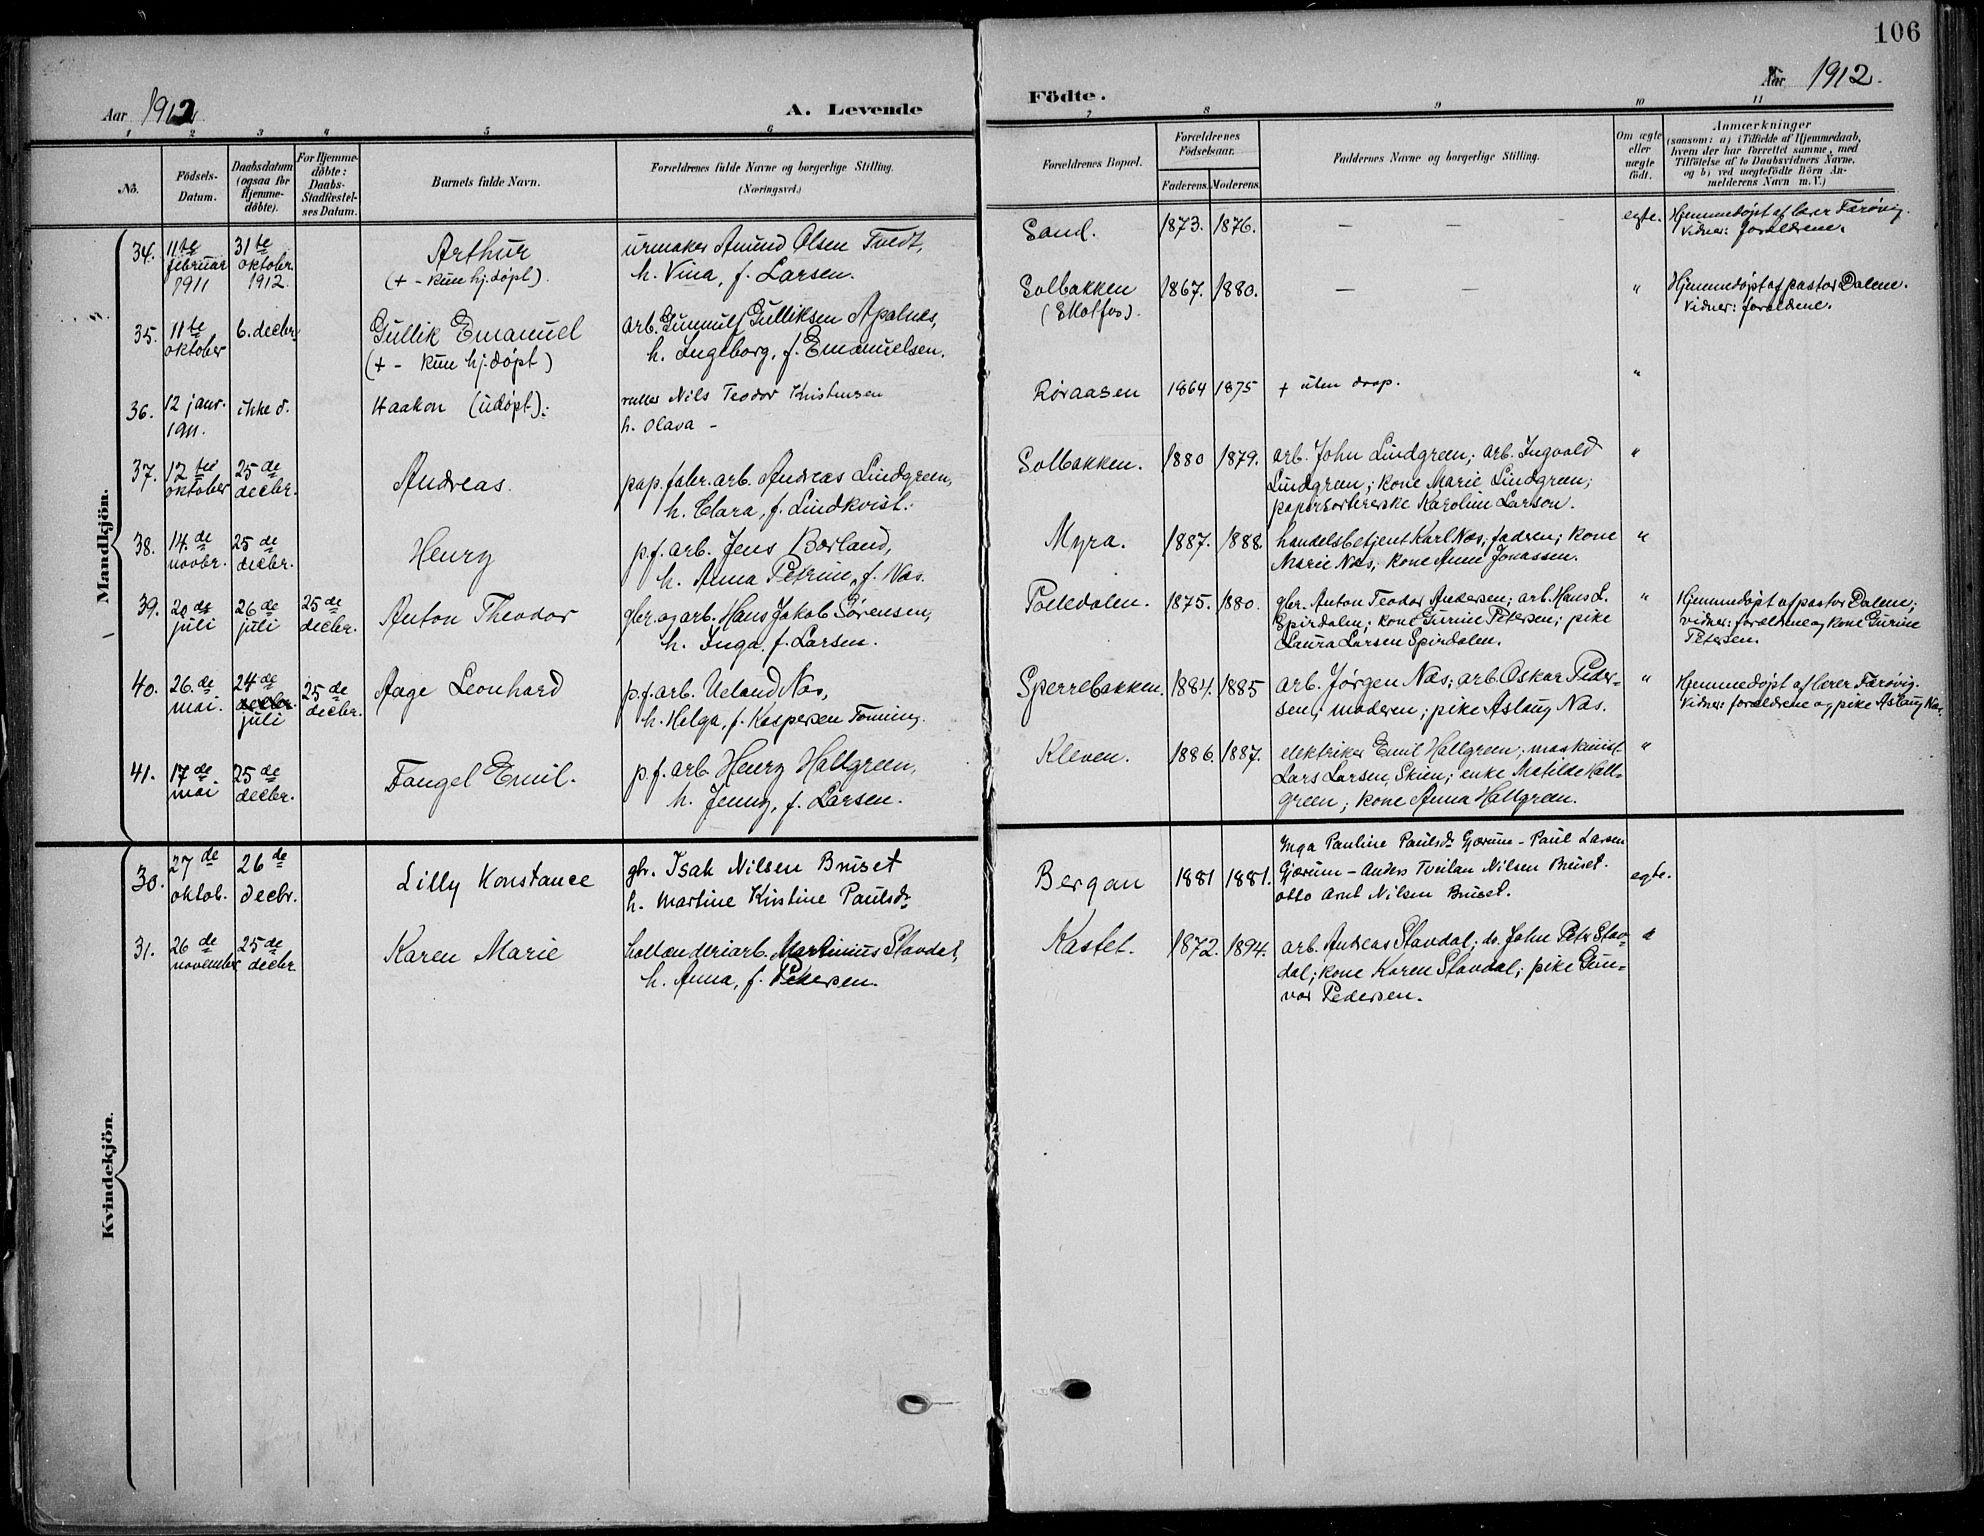 106
Aar 1912
A. Levende
Födte.
Aar 1912.
1 2 3 4 5 6
7 8 9 10 11
No.
Födsels-
Datum.
Daabsdatum
(ogsaa for
Hjemme-
döbte).
For Hjemme-
döbte:
Daabs-
Stadfæstel-
ses Datum.
Barnets fulde Navn.
Forældrenes fulde Navne og borgerlige Stilling.
(Næringsvei.)
Forældrenes Bopæl.
Forældrenes
Födselsaar.
Faderens. Moderens.
Faddernes Navne og borgerlige Stilling.
Om ægte
eller
uægte
født.
Anmærkninger
(saasom: a) i Tilfælde af Hjemmedaab,
hvem der har forrettet samme, med
Tilföielse af to Daabsvidners Navne,
og b) ved uægtefödte Börn An-
melderens Navn m. V.)
Mandkjön.
34. 11te februar 1911 31te oktobr. 1912. Arthur
(+ - kun hj.døpt).
urmaker Amund Olsen Tvedt,
h. Vina, f. Larsen.
Sand. 1873. 1876. — — — egte.
Hjemmedøpt af lærer Farøvig.
Vidner: forældrene.
35. 11te oktober 6. decbr. Gullik Emanuel
(+ - kun hj.døpt)
arb. Gunnulf Gulliksen Apalnes,
h. Ingeborg, f. Emanuelsen.
Solbakken
(Skotfos). 1867. 1880. — — "
Hjemmedøpt af pastor Dalene.
Vidner: forældrene.
36. 12 janr. 1911. ikke d. Haakon (udøpt).
Nils Teodor Kristensen
h. Olava -
Røraasen 1864 1875 + uten daap. "
37. 12te oktober 25de decbr. Andreas.
pap.fabr.arb. Andreas Lindgreen,
h. Clara, f. Lindkvist.
Solbakken. 1880 1879.
arb. John Lindgreen; arb. Ingvald
Lindgreen; kone Marie Lindgreen;
papirsortererske Karoline Larsen. "
38. 14.de novbr. 25de decbr. Henry
p.f. arb. Jens Børland,
h. Anna Petrine, f. Næs.
Myra. 1887. 1888.
handelsbetjent Karl Næs; faderen; kone
Marie Næs; kone Anne Jonassen. "
39. 20de juli 26de juli 25de decbr. Anton Theodor
gbr. og arb. Hans Jakob Sørensen,
h. Inga, f. Larsen.
1875. 1880.
gbr. Anton Teodor Andersen; arb. Hans L.
Spirdalen; kone Gurine Petersen; pike
Laura Larsen Spirdalen. "
Hjemmedøpt af pastor Dalene;
vidner: forældrene og kone Gurine
Petersen.
40. 26.de mai. 24de decbr. juli 25de decbr. Aage Leonhard
p.f. arb. Ueland Næs,
h. Helga, f. Kaspersen Tonning.
Sperrebakken. 1884. 1885
arb. Jørgen Næs; arb. Oskar Peder-
sen; moderen; pike Aslaug Næs. "
Hjemmedøpt af lærer Farøvig.
Vidner: forældrene og pike Aslaug Næs.
41. 17de mai. 25de decbr. Fangel Emil.
p.f. arb. Henry Hallgreen,
h. Jenny, f. Larsen.
Kleven. 1886. 1887.
elektriker Emil Hallgreen; maskinist
Lars Larsen, Skien; enke Matilde Hall-
green; kone Anna Hallgreen. "
Kvindekjön.
30. 27de oktob. 26de decbr. Lilly Konstance
gbr. Isak Nilsen Bruset
h. Martine Kristine Paulsdr
Bergan 1881 1881.
Inga Pauline Paulsdr. Gjærum - Paul Larsen
Gjærum - Anders Tveitan Nilsen Bruset.
Otto Arnt Nilsen Bruset. egte.
31. 26de november 25de decbr. Karen Marie
hollænderiarb. Martinius Stavdal,
h. Anna, f. Petersen.
Kastet. 1872. 1894.
arb. Andreas Stavdal; do. John Peter Stav-
dal; kone Karen Stavdal; pike Gun-
vor Pedersen. "